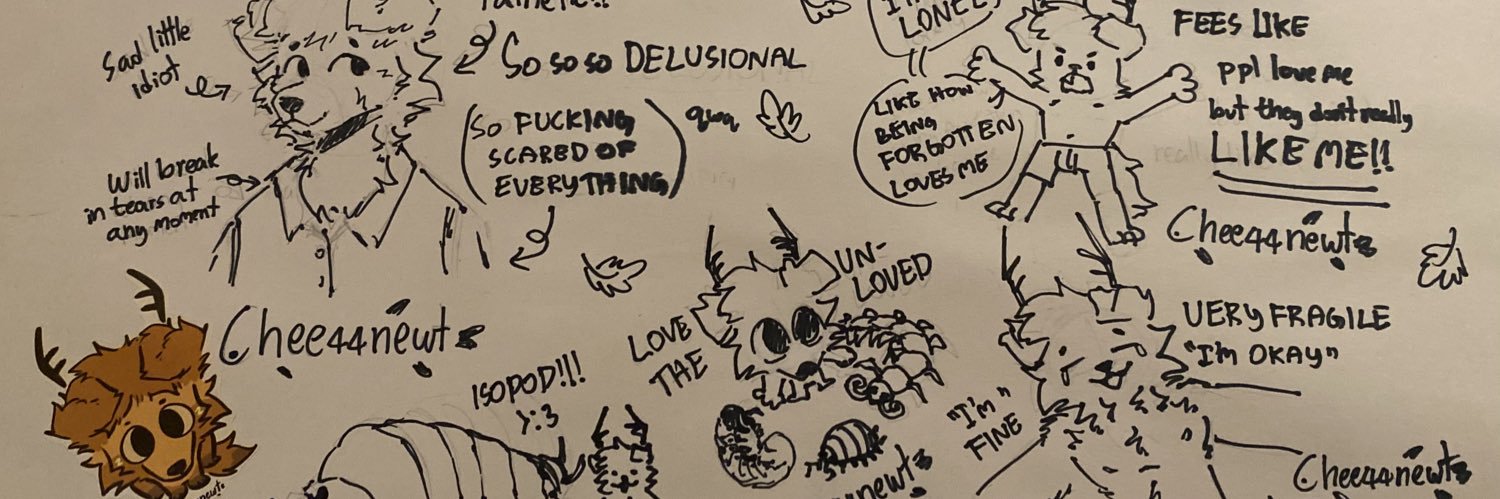 Sad little
idiot
So so so DELUSIONAL
(SO FUCKING
SCARED OF
EVERYTHING)
qwq
Will break
in tears at
any moment
LONELY
LIKE HOW
BEING
FORGOTTEN
LOVES ME
FEES LIKE
ppl love me
but they don't really
LIKE ME!!
Chee44newts
Chee44newts
LOVE
THE
UN-
LOVED
ISOPOD!!!
}:3
VERY FRAGILE
"I'M OKAY"
"I'M"
FINE
Chee44newts